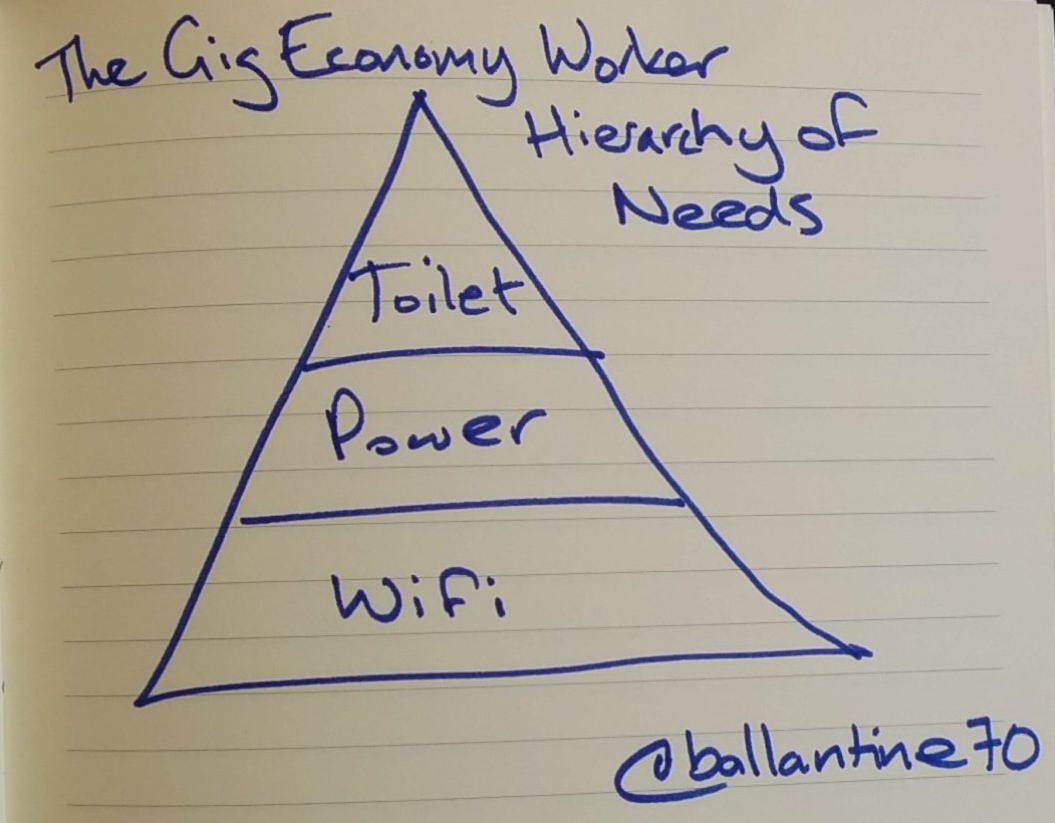 The Gig Economy Worker
Hierarchy of
Needs
Toilet
Power
WiFi
@ballantine70